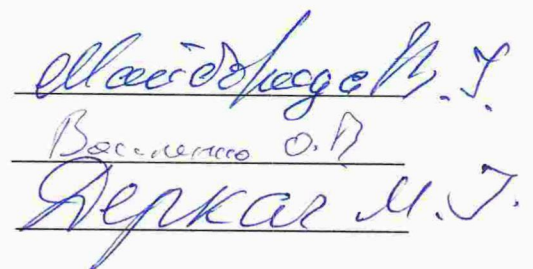 Майборода В. І.
Василенко О.В
Деркач М. І.